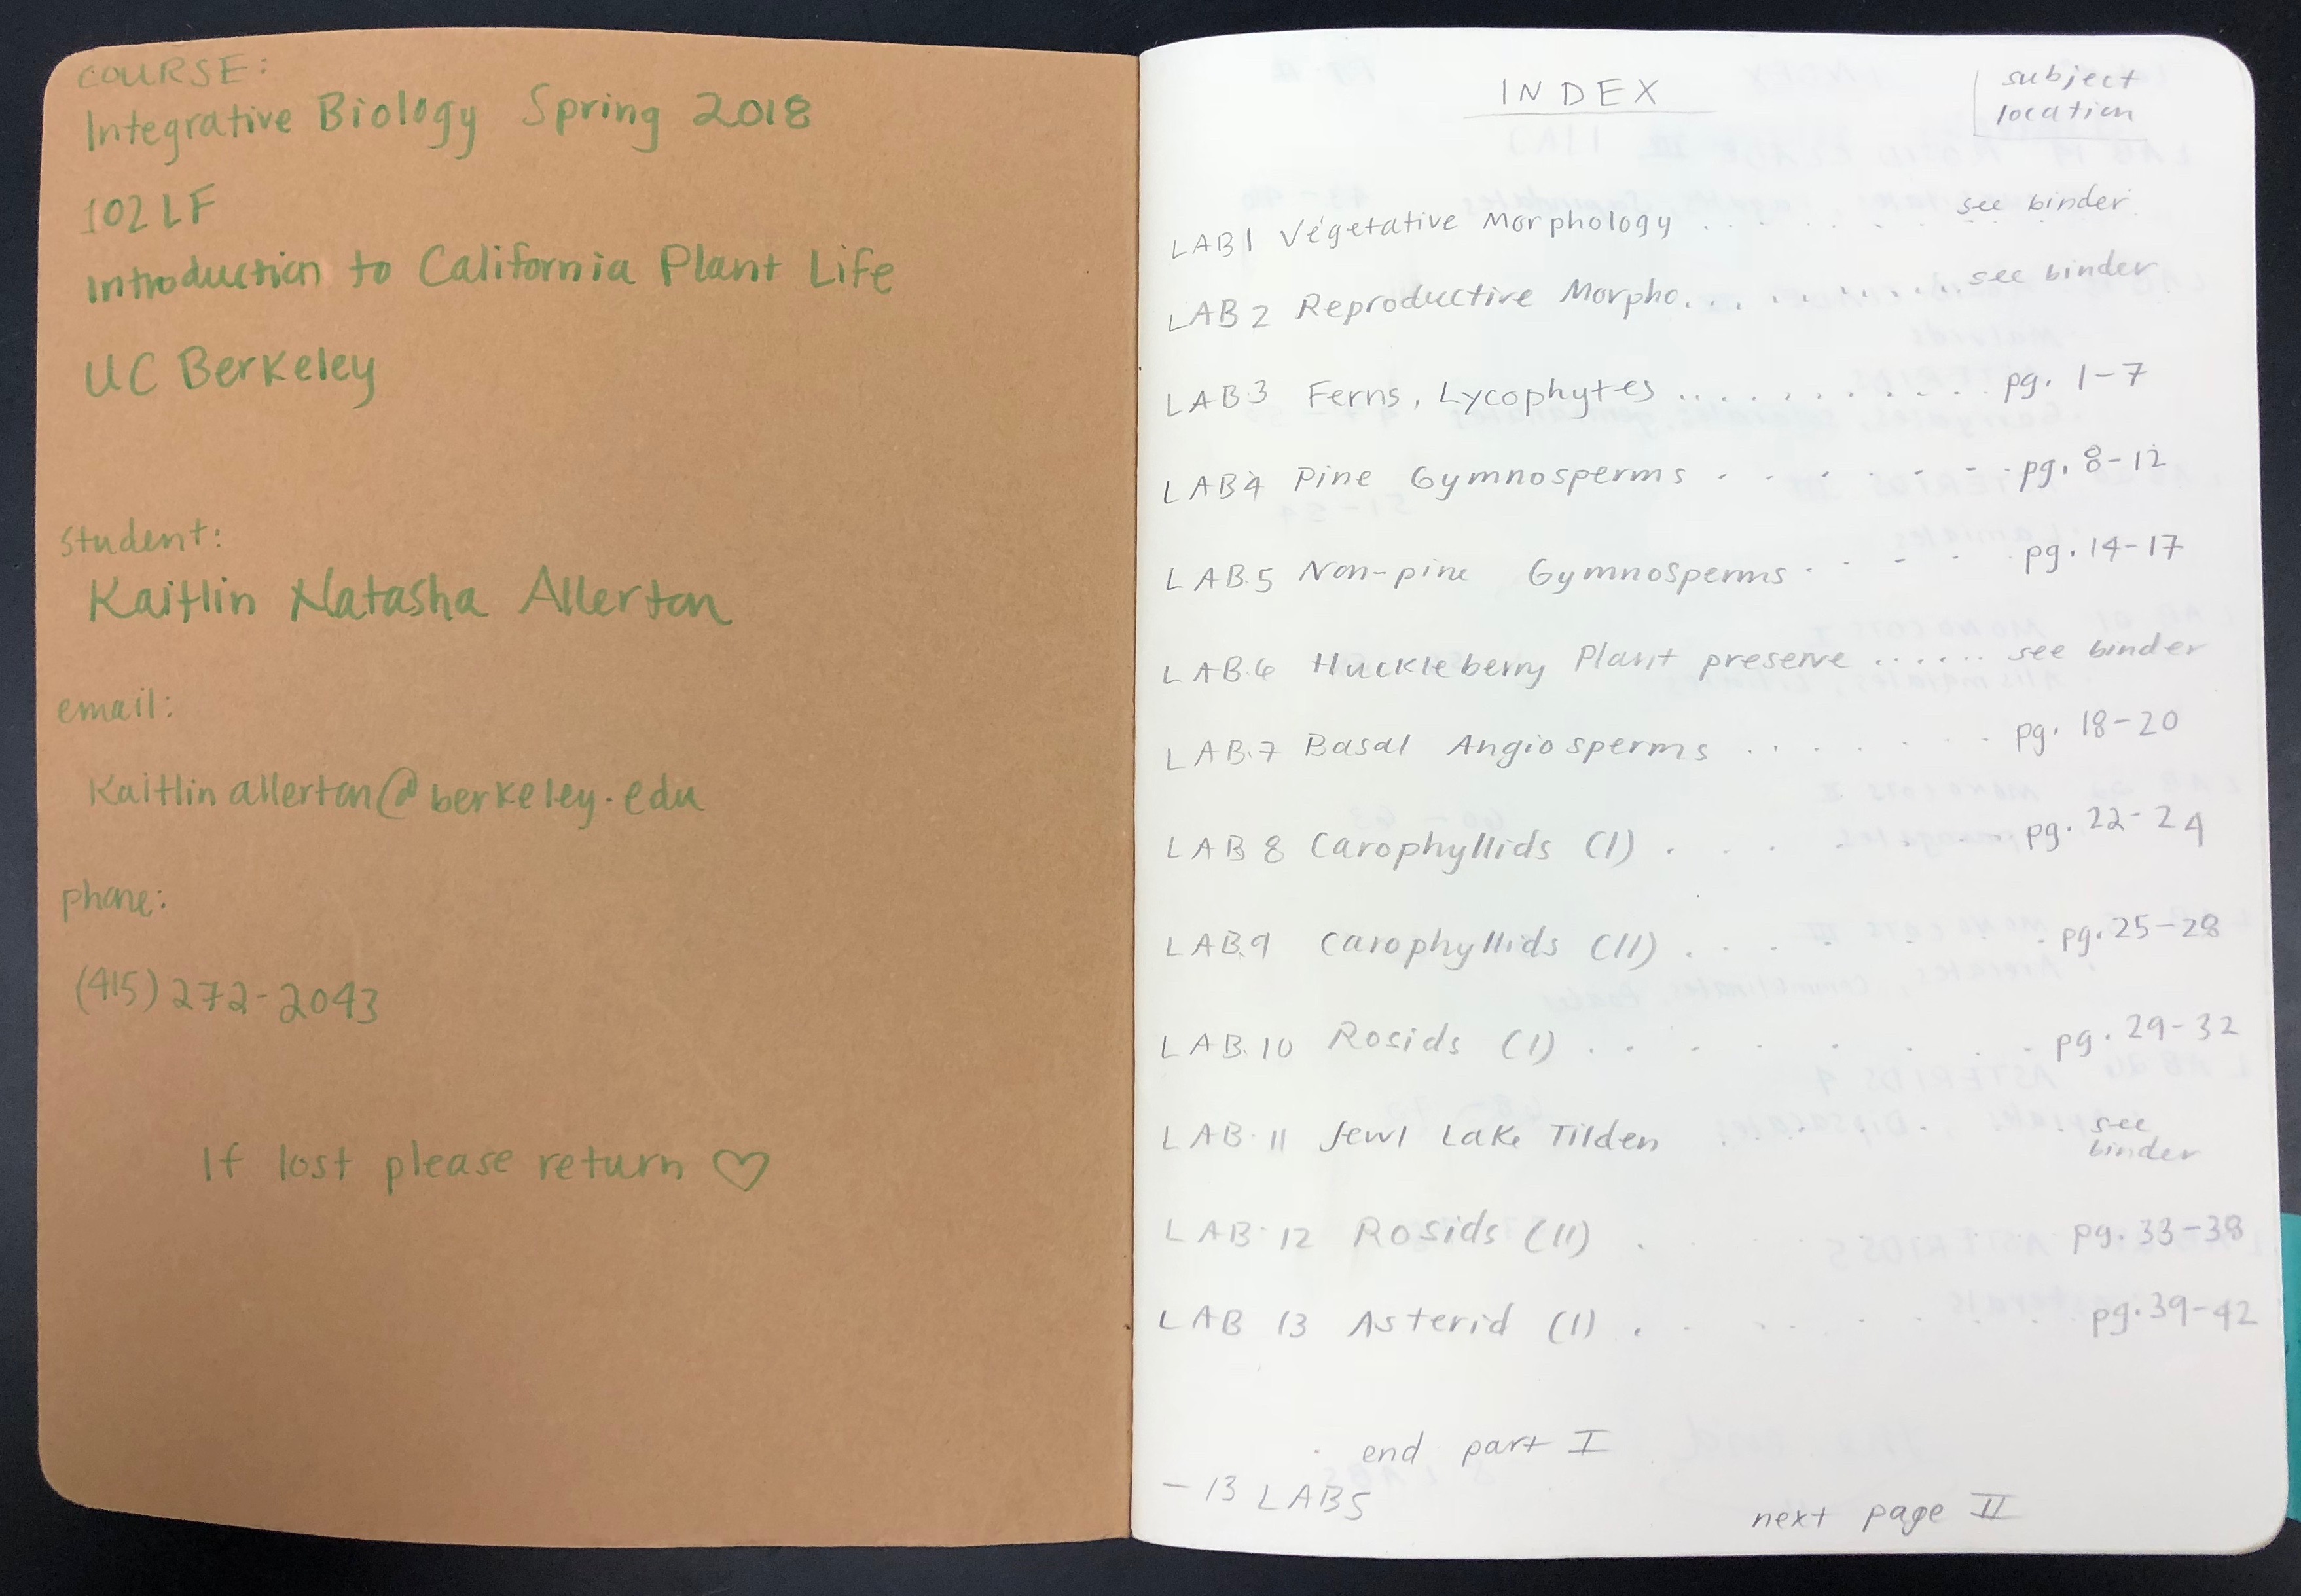 COURSE:
Integrative Biology Spring 2018
102 LF
Introduction to California Plant Life
UC Berkeley
student:
Kaitlin Natasha Allerton
email:
Kaitlinallerton@berkeley.edu
phone:
(415) 272-2043
If lost please return ♡
INDEX
subject
location
LAB 1 Vegetative Morphology . . . . . . see binder
LAB 2 Reproductive Morpho. . . . . . . . . . see binder
LAB 3 Ferns, Lycophytes . . . . . . . . . . pg. 1-7
LAB 4 Pine Gymnosperms . . . . . . . pg. 8-12
LAB 5 Non-pine Gymnosperms . . . . . pg. 14-17
LAB 6 Huckleberry Plant preserve . . . . . . see binder
LAB 7 Basal Angiosperms . . . . . . . pg. 18-20
LAB 8 Carophyllids (I) . . . . . . pg. 22-24
LAB 9 Carophyllids (II) . . . . . . pg. 25-28
LAB 10 Rosids (I) . . . . . . . . pg. 29-32
LAB 11 Jewl Lake Tilden . . . . . . see
binder
LAB 12 Rosids (II) . . . . . pg. 33-38
LAB 13 Asterid (I) . . . . . . . pg. 39-42
end part I
- 13 LABS
next page II